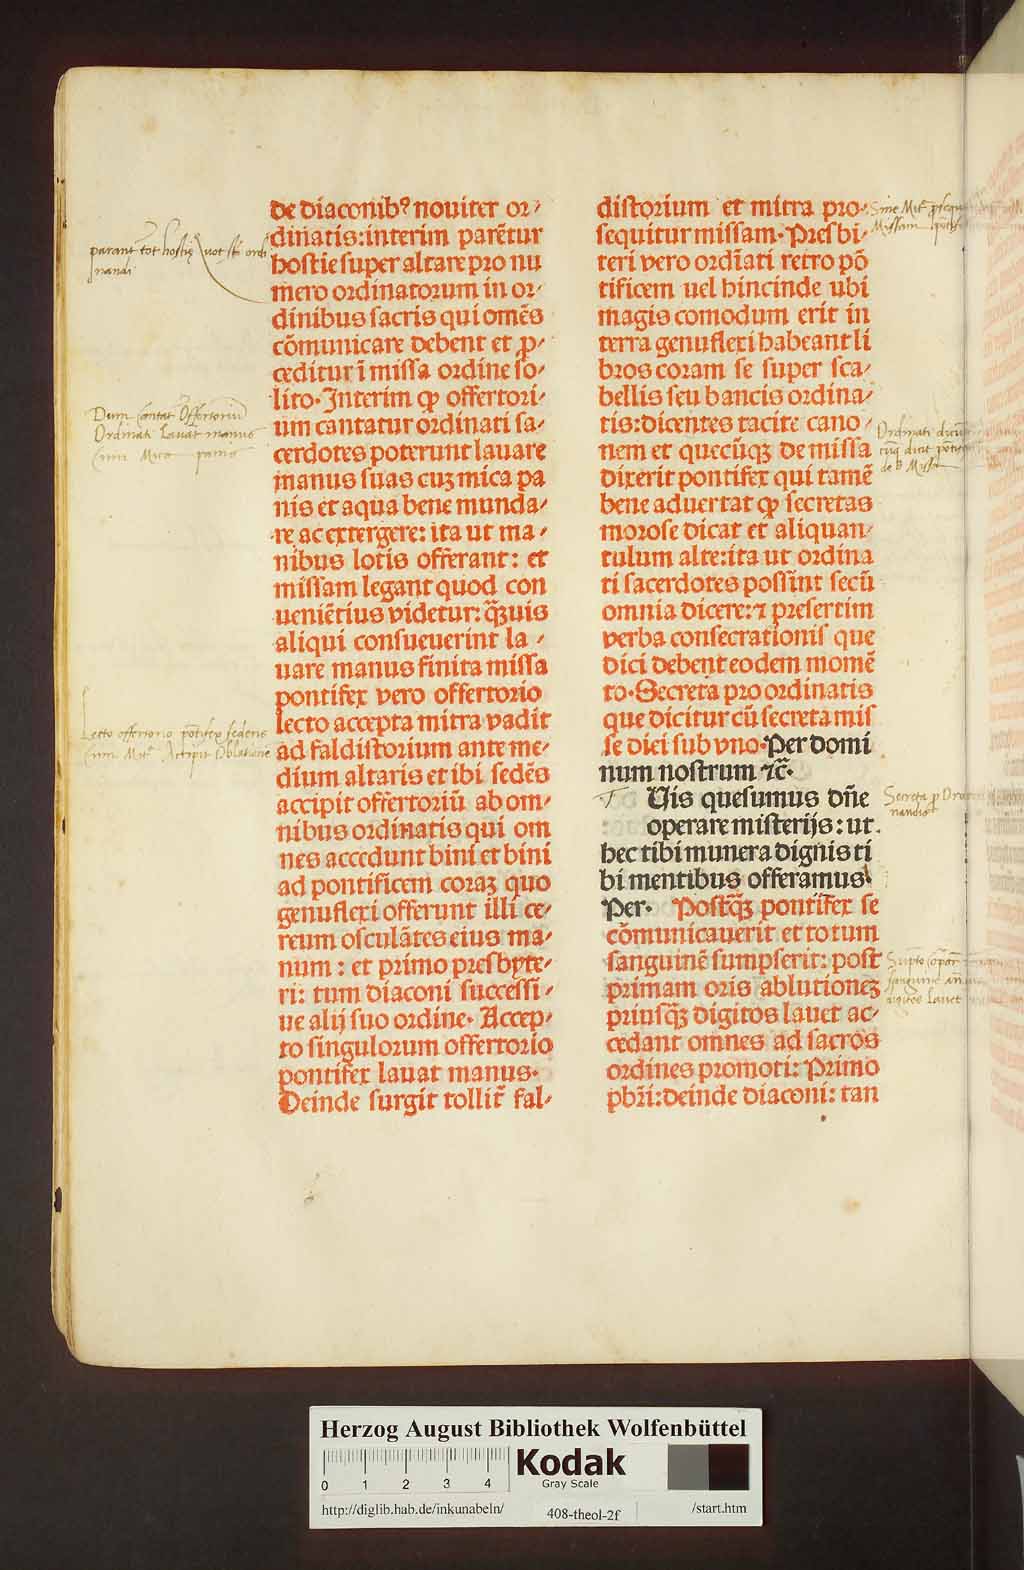 de diaconibꝰ nouiter or⸗
dinatis:interim parētur
hostie super altare pro nu
mero ordinatorum in or⸗
dinibus sacris qui omēs
cōmunicare debent et ꝓ⸗
ceditur ī missa ordine so⸗
lito. Interim ꝙ offertori⸗
um cantatur ordinati sa⸗
cerdotes poterunt lauare
manus suas cuꝫ mica pa
nis et aqua bene munda⸗
re ac extergere: ita ut ma⸗
nibus lotis offerant: et
missam legant quod con
ueniētius videtur: q̄ꝫuis
aliqui consueuerint la⸗
uare manus finita missa
pontifex vero offertorio
lecto accepta mitra vadit
ad faldistorium ante me⸗
dium altaris et ibi sedēs
accipit offertoriū ab om⸗
nibus ordinatis qui om
nes accedunt bini et bini
ad pontificem coraꝫ quo
genuflexi offerunt illi ce⸗
reum osculātes eius ma⸗
num : et primo presbyte⸗
ri: tum diaconi successi⸗
ue alij suo ordine. Accep⸗
to singulorum offertorio
pontifex lauat manus.
Deinde surgit tollit̄ fal⸗
distorium et mitra pro⸗
sequitur missam. Presbi⸗
teri vero ordīati retro pō
tificem uel hincinde ubi
magis comodum erit in
terra genuflexi habeant li
bros coram se super sca⸗
bellis seu bancis ordina⸗
tis:dicentes tacite cano⸗
nem et quecūqꝫ de missa
dixerit pontifex qui tamē
bene aduertat ꝙ secretas
morose dicat et aliquan⸗
tulum alte:ita ut ordina
ti sacerdotes possīnt secū
omnia dicere:⁊ presertim
verba consecrationis que
dici debent eodem momē
to. Secreta pro ordinatis
que dicitur cū secreta mis
se diei sub vno. Per domi
num nostrum ⁊c̄.
Uis quesumus dn̄e
operare misterijs: ut
hec tibi munera dignis ti
bi mentibus offeramus
Per. Postq̄ꝫ pontifex se
cōmunicauerit et totum
sanguinē sumpserit: post
primam oris ablutioneꝫ
priusq̄ꝫ digitos lauet ac⸗
cedant omnes ad sacros
ordines promoti: Primo
pb̄ri:deinde diaconi: tan
parant tot hostię quot st̄ ordi
nandi
Dum cantat Offertoriū
Ordinati lauāt manus
cum Mica panis
Lecto offertorio pōtifex sedens
cum Mit. Accipit Oblatione
Missam
Ordinati
de Missa
Secreta p
nandis
digitos Lauet
Herzog August Bibliothek Wolfenbüttel
0 1 2 3 4
Kodak
Gray Scale
http://diglib.hab.de/inkunabeln/ 408-theol-2f /start.htm